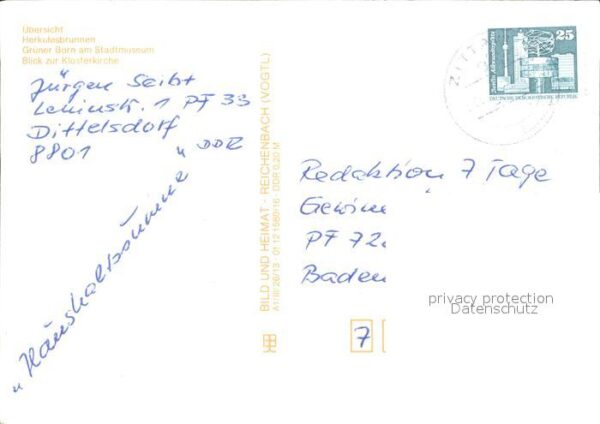 Übersicht
Herkulesbrunnen
Grüner Born am Stadtmuseum
Blick zur Klosterkirche
Jürgen Seibt
Leninstr. 1 PF 33
Dittelsdorf
8801
DDR
"Haushaltssumme"
BILD UND HEIMAT · REICHENBACH (VOGTL)
A1/III/26/13 · 01 12 1560/16 · DDR 0,20 M
25
DEUTSCHE DEMOKRATISCHE REPUBLIK
ZITTA
Redaktion 7 Tage
Gewinn
PF 72
Baden
privacy protection
Datenschutz
7